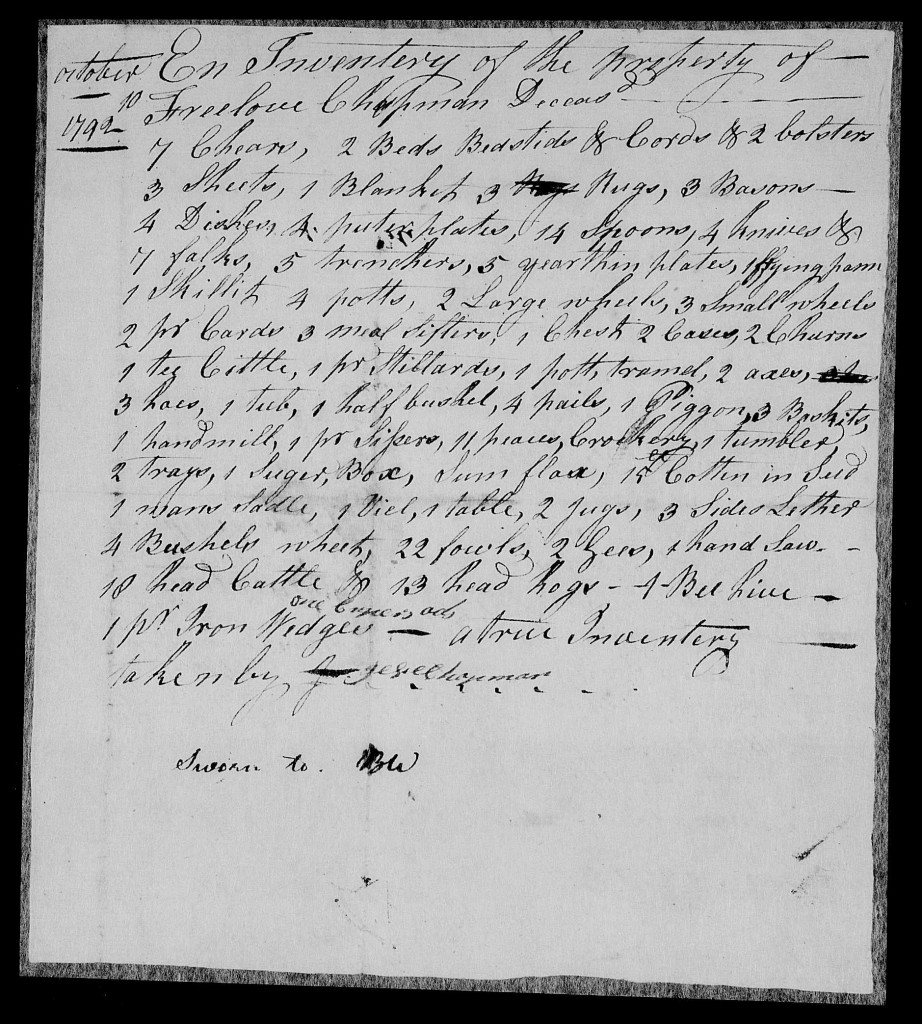 October 10 1792
En Inventery of the property of
Freelove Chapman Deceasd
7 Chears, 2 Beds Bedsteds & Cords & 2 bolsters
3 Sheets, 1 Blanket 3 Rugs, 3 Basons
4 Dishes, 4 puter plates, 14 Spoons, 4 knives &
7 falks, 5 trenchers, 5 yearthin plates, 1 frying pann
1 Skillit 4 potts, 2 Large wheels, 3 Small wheels
2 pr Cards 3 meal Sifters, 1 Chest 2 Cases, 2 Churns
1 tea Cittle, 1 pr Stiblards, 1 pott tramel, 2 axes,
3 hoes, 1 tub, 1 half bushel, 4 pails, 1 Piggon, 3 Baskits,
1 handmill, 1 pr Sissers, 11 peaces Crockery, 1 tumbler
2 trays, 1 Suger Box, Sum flax, 15 Cotten in Seed
1 mans Sadle, 1 Viel, 1 table, 2 Jugs, 3 Sides Lether
4 Bushels wheet, 22 fowls, 2 Gees, 1 hand Saw
18 head Cattle & 13 head hogs - 4 Bee hive
one
1 pr Iron Wedges — a true Inventery
taken by Chapman
Sworn to.